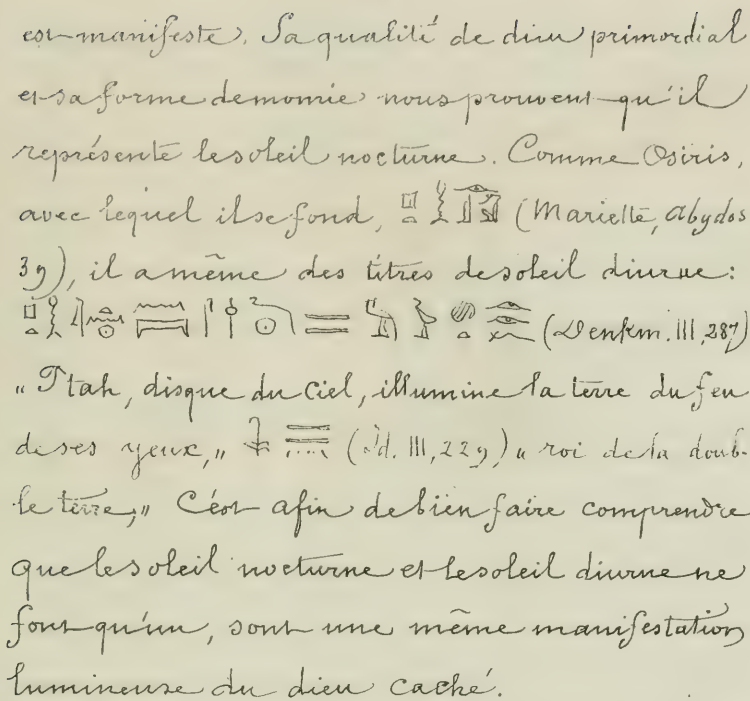 est manifeste. Sa qualité de dieu primordial
et sa forme de momie nous prouvent qu'il
représente le soleil nocturne. Comme Osiris,
avec lequel il se fond, (Mariette, Abydos
39), il a même des titres de soleil diurne:
(Denkm. III, 287)
„Ptah, disque du Ciel, illumine la terre du feu
de ses yeux,„ (Id. III, 229) „roi de la doub-
le terre,„ C'est afin de bien faire comprendre
que le soleil nocturne et le soleil diurne ne
font qu'un, sont une même manifestation
lumineuse du dieu caché.